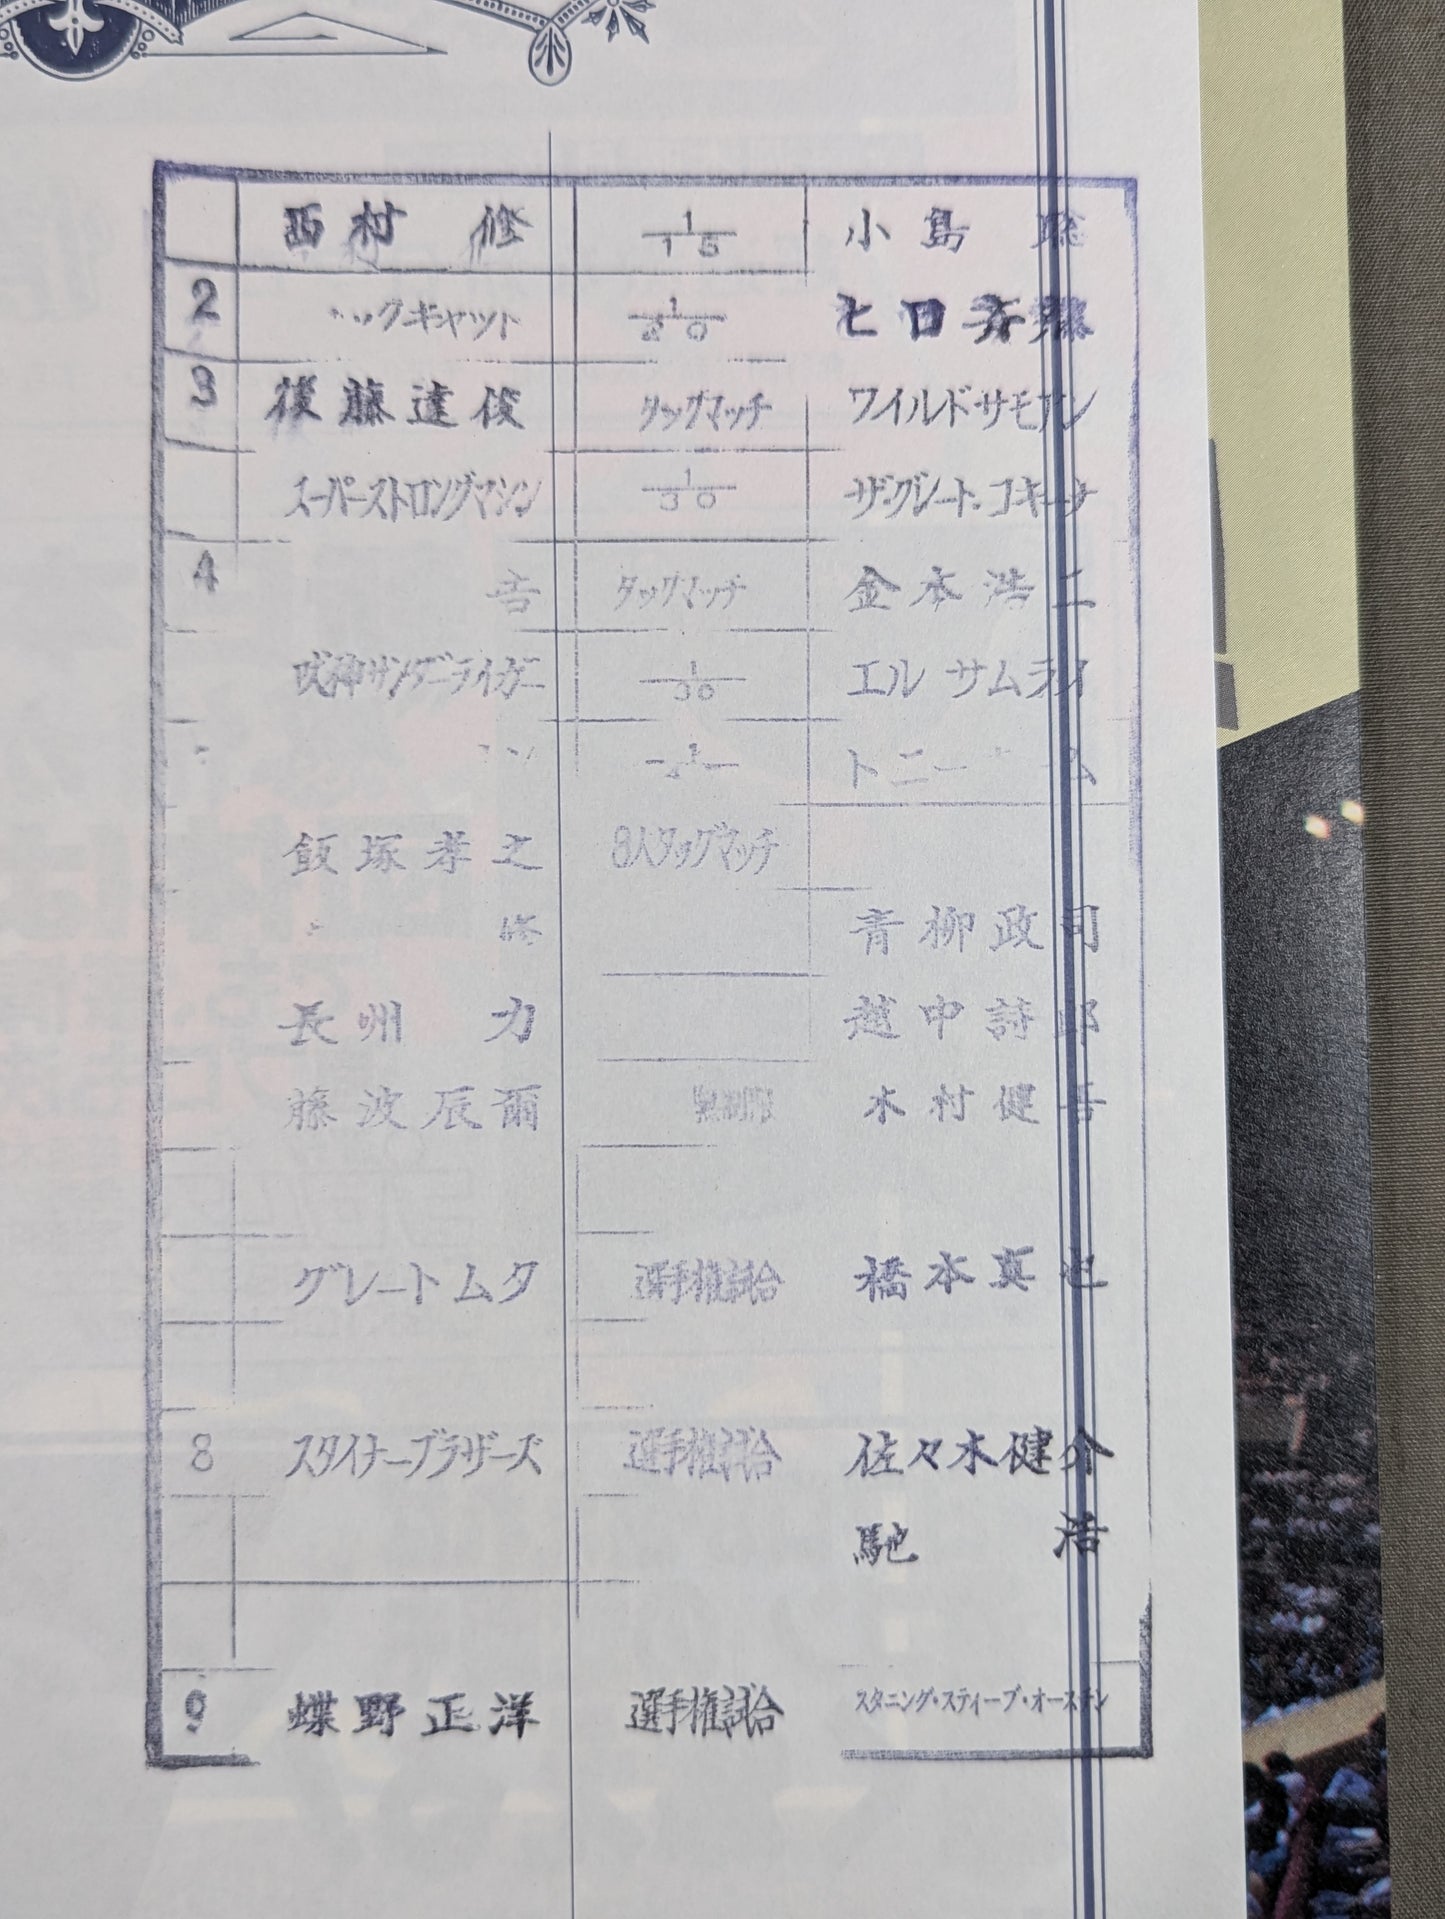 西村 修 1/15 小島 聡
2 ックキャット 1/20 ヒロ斉藤
3 後藤達俊 タッグマッチ ワイルド・サモアン
スーパーストロングマシン 1/30 ザ・グレート・コキーナ
4 吾 タッグマッチ 金本浩二
獣神サンダーライガー 1/30 エル サムライ
トニー ム
飯塚孝之 8人タッグマッチ
修 青柳政司
長州 力 越中詩郎
藤波辰爾 無制限 木村健吾
グレートムタ 選手権試合 橋本真也
8 スタイナーブラザーズ 選手権試合 佐々木健介
馳 浩
9 蝶野正洋 選手権試合 スタニング・スティーブ・オースチン